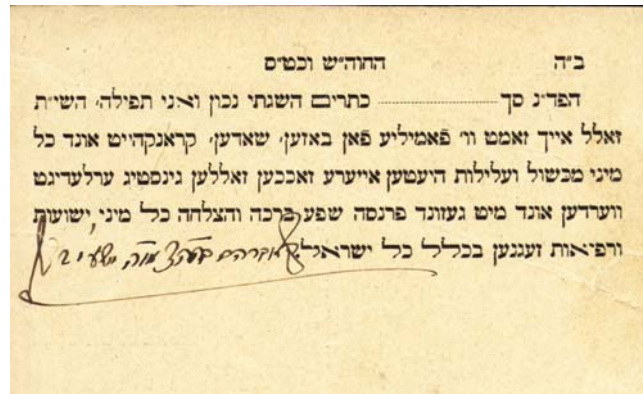 ב״ה החוה״ש וכט״ס
הפד״נ סך ............ כתרים השגתי נכון ואני תפילה׳ השי״ת
זאלל אייך זאמט ווי׳ פאמיליע פאן באזען׳ שאדען׳ קראנקהייט אונד כל
מיני מכשול ועלילות היעטען אייערע זאככען זאללען גינסטיג ערלעדיגט
ווערדען אונד מיט געזונד פרנסה שפע ברכה והצלחה כל מיני ישועות
ורפיאות זעגנען בכלל כל ישראל.